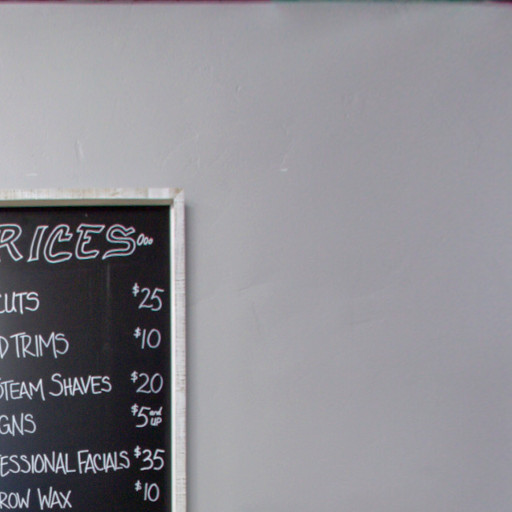 RICES...
CUTS $25
D TRIMS $10
STEAM SHAVES $20
GNS $5 and up
ESSIONAL FACIALS $35
ROW WAX $10